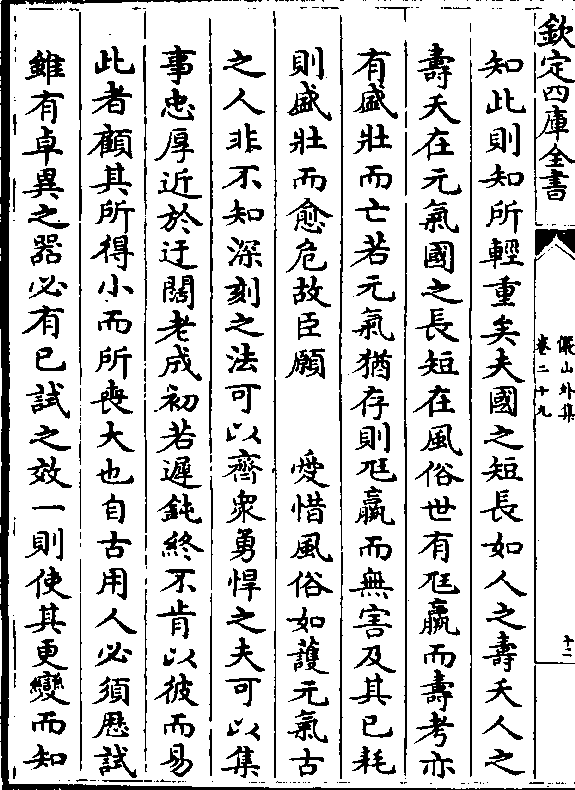 欽定四庫全書
儼山外集
卷二十九
十二
知此則知所輕重矣夫國之短長如人之壽夭人之
壽夭在元氣國之長短在風俗世有尫羸而壽考亦
有盛壯而亡若元氣猶存則尫羸而無害及其已耗
則盛壯而愈危故臣願　　愛惜風俗如䕶元氣古
之人非不知深刻之法可以齊衆勇悍之夫可以集
事忠厚近於迂闊老成初若遲鈍終不肯以彼而易
此者顧其所得小而所喪大也自古用人必須歴試
雖有卓異之器必有已試之效一則使其更變而知